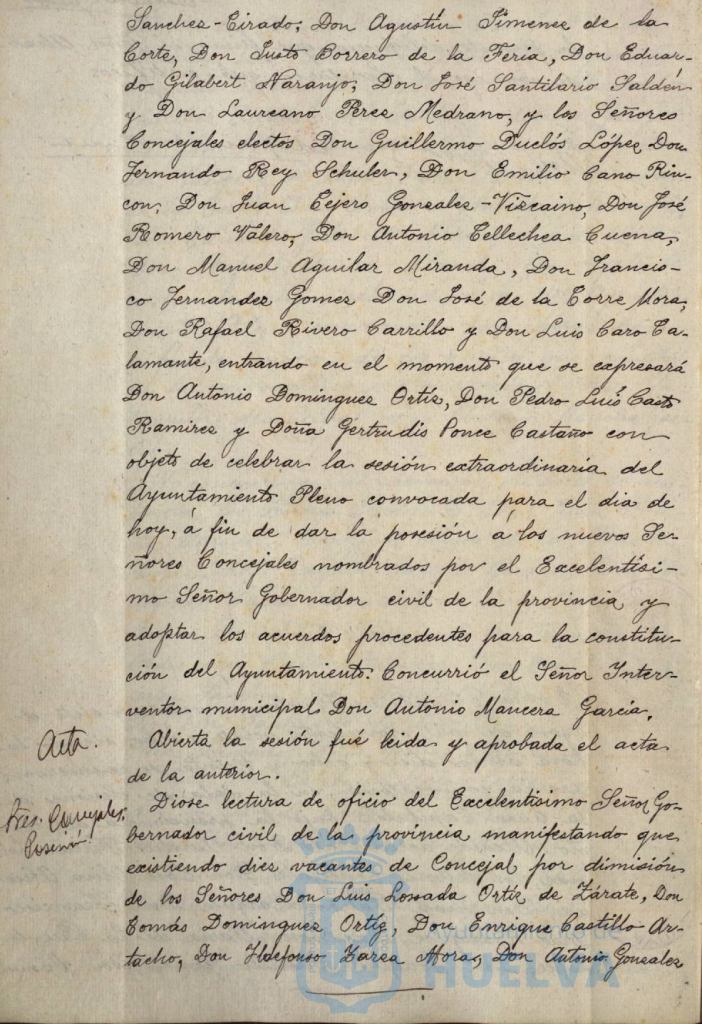 Sanchez-Tirado; Don Agustín Jimenez de la
Corte, Don Justo Borrero de la Feria, Don Eduar-
do Gilabert Naranjo; Don José Santilario Saldén
y Don Laureano Perez Medrano, y los Señores
Concejales electos Don Guillermo Duclós López, Don
Fernando Rey Schuler, Don Emilio Cano Rin-
con, Don Juan Tejero Gonzalez-Vizcaino, Don José
Romero Valero, Don Antonio Tellechea Cuena,
Don Manuel Aguilar Miranda, Don Francis-
co Fernandez Gomez Don José de la Torre Mora,
Don Rafael Rivero Carrillo y Don Luis Caro Ta-
lamante, entrando en el momento que se expresará
Don Antonio Dominguez Ortíz, Don Pedro Luis Casto
Ramirez y Doña Gertrudis Ponce Castaño con
objeto de celebrar la sesión extraordinaria del
Ayuntamiento Pleno convocada para el dia de
hoy, á fin de dar la posesión á los nuevos Se-
ñores Concejales nombrados por el Excelentísi-
mo Señor Gobernador civil de la provincia y
adoptar los acuerdos procedentes para la constitu-
ción del Ayuntamiento. Concurrió el Señor Inter-
ventor municipal Don Antonio Mancera García.
Acta.
Abierta la sesión fué leida y aprobada el acta
de la anterior.
Sres. Concejales.
Posesión.
Diose lectura de oficio del Excelentisimo Señor Go-
bernador civil de la provincia manifestando que
existiendo diez vacantes de Concejal por dimisión
de los Señores Don Luis Lossada Ortíz de Zárate, Don
Tomás Dominguez Ortíz, Don Enrique Castillo Ar-
tacho, Don Ildefonso Zarza Mora, Don Antonio Gonzalez
HUELVA